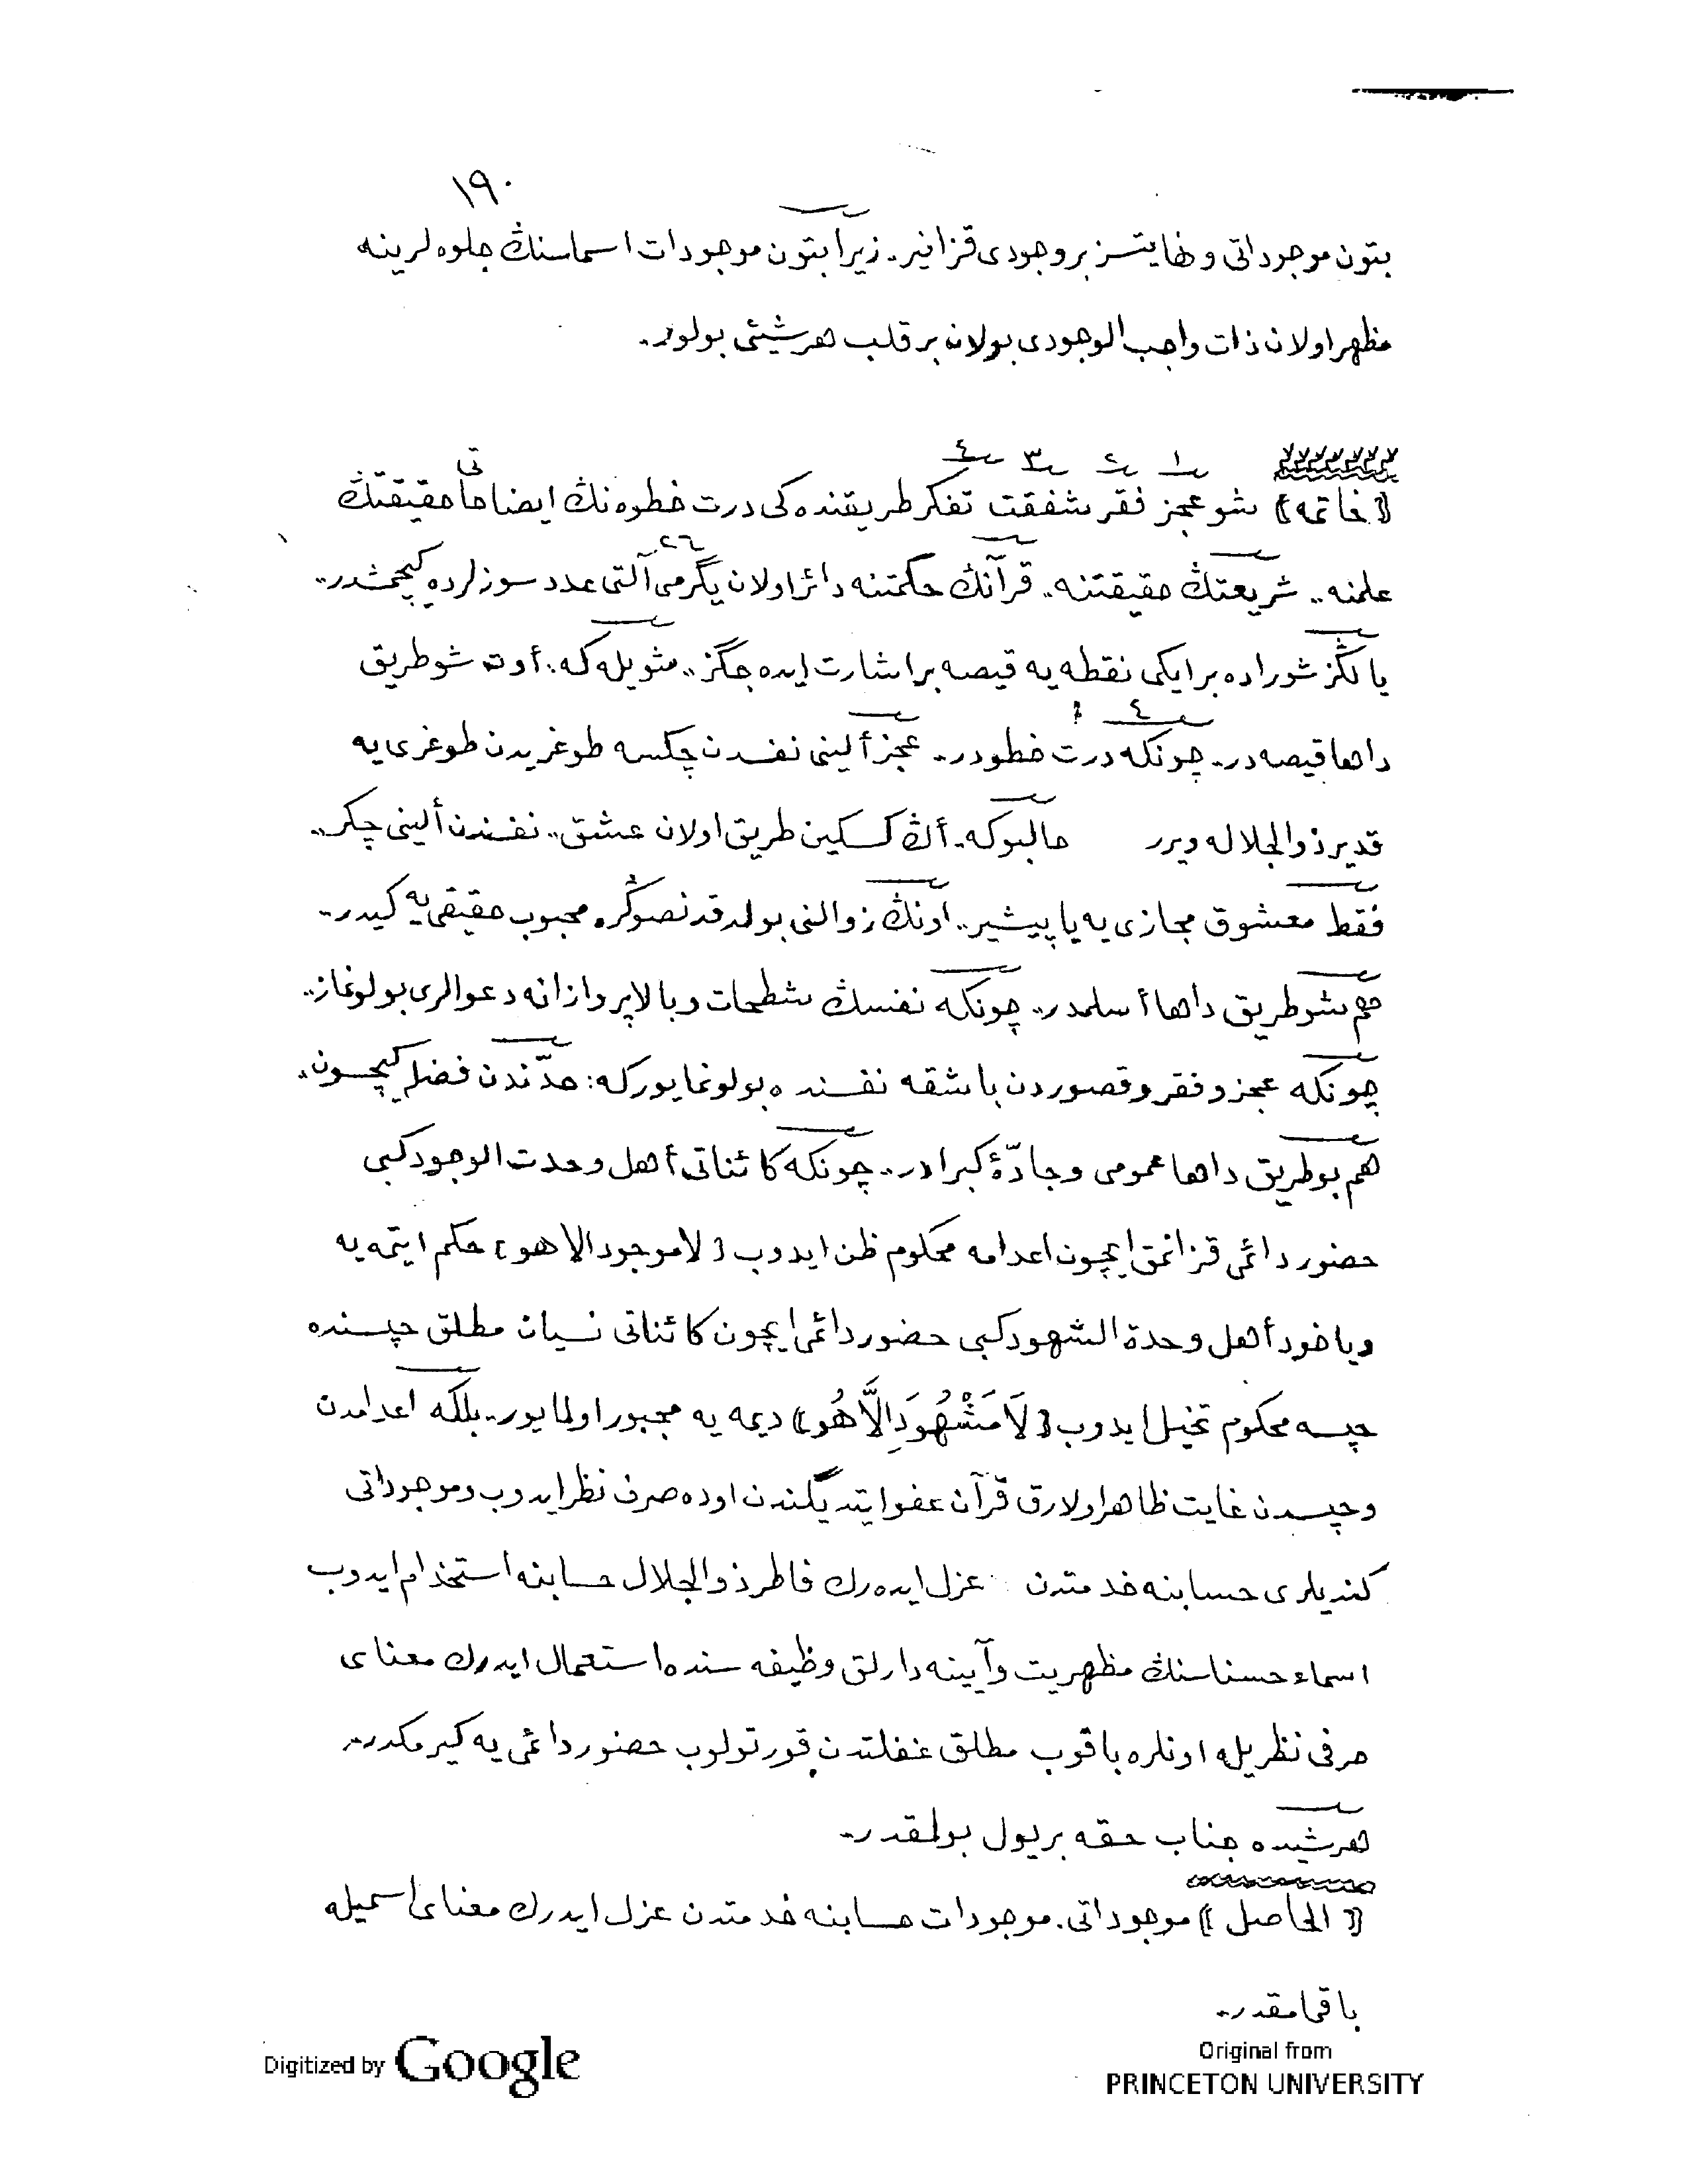 ١٩٠
بتون موجوداتى و نهايتسز بر وجودى قزانير. زيرا بتون موجودات اسماسنڭ جلوه لرينه
مظهر اولان ذات واجب الوجودى بولان بر قلب هر شيئى بولور.
١ ٢ ٣ ٤
﴿خاتمه﴾ شو عجز فقر شفقت تفكر طريقنده كى درت خطوه نڭ ايضاحاتى حقيقتڭ
علمنه.. شريعتڭ حقيقتنه.. قرآنڭ حكمتنه دائر اولان يگرمى آلتى عدد سوزلرده كيچمشدر..
٢٦
يالڭز شوراده بر ايكى نقطه يه قيصه بر اشارت ايده جگز.. شويله كه: أوت شو طريق
داها قيصه در.. چونكه درت خطودر.. عجز ألينى نفسدن چكسه طوغريدن طوغرى يه
٤
قدير ذوالجلاله ويرر حالبوكه. أڭ كسكين طريق اولان عشق.. نفسندن ألينى چكر..
فقط معشوق مجازى يه ياپيشير.. اونڭ زوالنى بولدقدنصوڭره محبوب حقيقى يه كيدر..
هم شو طريق داها أسلمدر.. چونكه نفسڭ شطحات و بالاپروازانه دعوالرى بولونماز..
چونكه عجز و فقر و قصوردن باشقه نفسنده بولونمايور كه: حدّندن فضله كيچسون.
هم بو طريق داها عمومى و جادّۀ كبرادر.. چونكه كائناتى أهل وحدت الوجود كبى
حضور دائمى قزانمق ايچون اعدامه محكوم ظن ايدوب ﴿لا موجود الا هو﴾ حكم ايتمه يه
وياخود أهل وحدة الشهود كبى حضور دائمى ايچون كائناتى نسيان مطلق حپسنده
حپسه محكوم تخيل ايدوب ﴿لَا مَشْهُودَ اِلَّا هُو﴾ ديمه يه مجبور اولمايور.. بلكه اعدامدن
و حپسدن غايت ظاهر اولارق قرآن عفو ايتديگندن اوده صرف نظر ايدوب و موجوداتى
كنديلرى حسابنه خدمتدن عزل ايده رك فاطر ذوالجلال حسابنه استخدام ايدوب
اسماء حسناسنڭ مظهريت و آيينه دارلق وظيفه سنده استعمال ايدرك معناى
حرفى نظريله اونلره باقوب مطلق غفلتدن قورتولوب حضور دائمى يه كيرمكدر..
هر شيده جناب حقه بر يول بولمقدر..
﴿الحاصل﴾ موجوداتى. موجودات حسابنه خدمتدن عزل ايدرك معناى اسميله
باقمامقدر..
Digitized by Google
Original from
PRINCETON UNIVERSITY